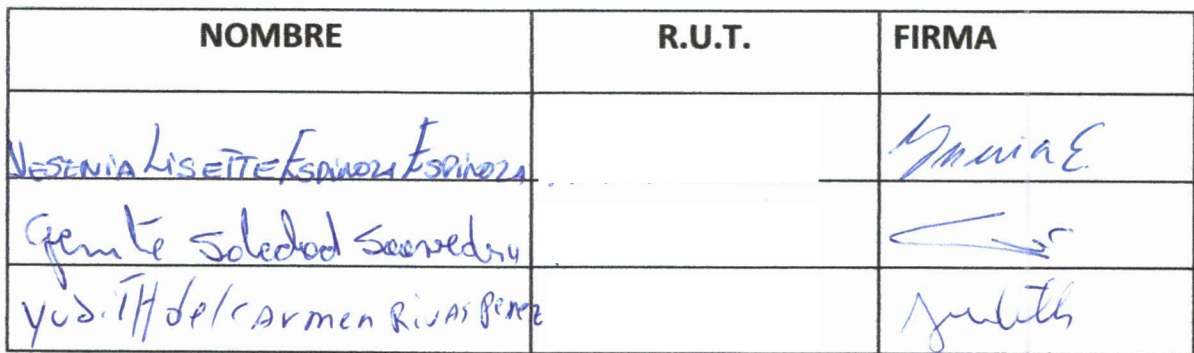 NOMBRE R.U.T. FIRMA
YESENIA LISETTE ESPINOZA ESPINOZA
Soledad Saavedra
YUDITH del CARMEN RIVAS PEREZ Judith